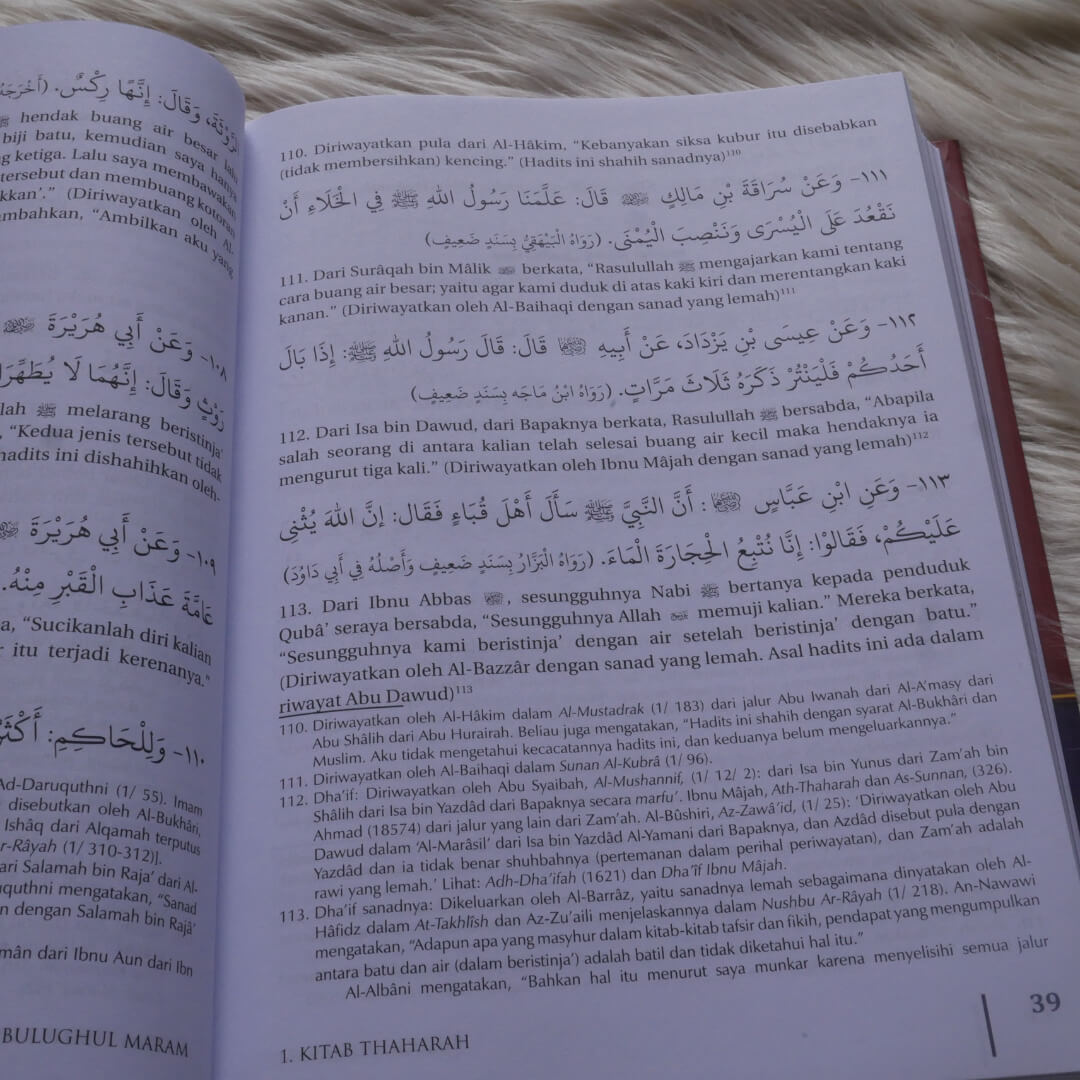 لرَّوْثَةَ، وَقَالَ: إِنَّهَا رِكْسٌ. (أَخْرَجَهُ
ﷺ hendak buang air besar lalu
biji batu, kemudian saya hanya
g ketiga. Lalu saya membawakan
tersebut dan membuang kotoran
kkan'." (Diriwayatkan oleh Al-
ambahkan, "Ambilkan aku yang
١٠٨- وَعَنْ أَبِي هُرَيْرَةَ
رَوْثٍ وَقَالَ: إِنَّهُمَا لَا يُطَهِّرَا
lah ﷺ melarang beristinja'
, "Kedua jenis tersebut tidak
hadits ini dishahihkan oleh-
١٠٩- وَعَنْ أَبِي هُرَيْرَةَ
عَامَّةَ عَذَابِ الْقَبْرِ مِنْهُ.
a, "Sucikanlah diri kalian
r itu terjadi kerenanya."
١١٠- وَلِلْحَاكِمِ: أَكْثَرُ
Ad-Daruquthni (1/ 55). Imam
disebutkan oleh Al-Bukhâri,
Ishâq dari Alqamah terputus
r-Râyah (1/ 310-312)].
ari Salamah bin Raja' dari Al-
quthni mengatakan, "Sanad
n dengan Salamah bin Rajâ'
mân dari Ibnu Aun dari Ibn
BULUGHUL MARAM
110. Diriwayatkan pula dari Al-Hâkim, "Kebanyakan siksa kubur itu disebabkan
(tidak membersihkan) kencing." (Hadits ini shahih sanadnya)110
١١١- وَعَنْ سُرَاقَةَ بْنِ مَالِكٍ ﷺ قَالَ: عَلَّمَنَا رَسُولُ اللهِ ﷺ فِي الْخَلَاءِ أَنْ
نَقْعُدَ عَلَى الْيُسْرَى وَنَنْصِبَ الْيُمْنَى. (رَوَاهُ الْبَيْهَقِيُّ بِسَنَدٍ ضَعِيفٍ)
111. Dari Surâqah bin Mâlik berkata, "Rasulullah ﷺ mengajarkan kami tentang
cara buang air besar; yaitu agar kami duduk di atas kaki kiri dan merentangkan kaki
kanan." (Diriwayatkan oleh Al-Baihaqi dengan sanad yang lemah)111
١١٢- وَعَنْ عِيسَى بْنِ يَزْدَادَ، عَنْ أَبِيهِ قَالَ: قَالَ رَسُولُ اللهِ ﷺ: إِذَا بَالَ
أَحَدُكُمْ فَلْيَنْتُرْ ذَكَرَهُ ثَلَاثَ مَرَّاتٍ. (رَوَاهُ ابْنُ مَاجَه بِسَنَدٍ ضَعِيفٍ)
112. Dari Isa bin Dawud, dari Bapaknya berkata, Rasulullah ﷺ bersabda, "Abapila
salah seorang di antara kalian telah selesai buang air kecil maka hendaknya ia
mengurut tiga kali." (Diriwayatkan oleh Ibnu Mâjah dengan sanad yang lemah)112
١١٣- وَعَنِ ابْنِ عَبَّاسٍ : أَنَّ النَّبِيَّ ﷺ سَأَلَ أَهْلَ قُبَاءٍ فَقَالَ: إنَّ اللهَ يُثْنِى
عَلَيْكُمْ، فَقَالُوْا: إِنَّا نُتْبِعُ الْحِجَارَةَ الْمَاءَ. (رَوَاهُ الْبَزَّارُ بِسَنَدٍ ضَعِيفٍ وَأَصْلُهُ فِي أَبِي دَاوُدَ)
113. Dari Ibnu Abbas , sesungguhnya Nabi ﷺ bertanya kepada penduduk
Qubâ' seraya bersabda, "Sesungguhnya Allah memuji kalian." Mereka berkata,
"Sesungguhnya kami beristinja' dengan air setelah beristinja' dengan batu."
(Diriwayatkan oleh Al-Bazzâr dengan sanad yang lemah. Asal hadits ini ada dalam
riwayat Abu Dawud)113
110. Diriwayatkan oleh Al-Hâkim dalam Al-Mustadrak (1/ 183) dari jalur Abu Iwanah dari Al-A'masy dari
Abu Shâlih dari Abu Hurairah. Beliau juga mengatakan, "Hadits ini shahih dengan syarat Al-Bukhâri dan
Muslim. Aku tidak mengetahui kecacatannya hadits ini, dan keduanya belum mengeluarkannya."
111. Diriwayatkan oleh Al-Baihaqi dalam Sunan Al-Kubrâ (1/ 96).
112. Dha'if: Diriwayatkan oleh Abu Syaibah, Al-Mushannif, (1/ 12/ 2): dari Isa bin Yunus dari Zam'ah bin
Shâlih dari Isa bin Yazdâd dari Bapaknya secara marfu'. Ibnu Mâjah, Ath-Thaharah dan As-Sunnan, (326).
Ahmad (18574) dari jalur yang lain dari Zam'ah. Al-Bûshiri, Az-Zawâ'id, (1/ 25): 'Diriwayatkan oleh Abu
Dawud dalam 'Al-Marâsil' dari Isa bin Yazdâd Al-Yamani dari Bapaknya, dan Azdâd disebut pula dengan
Yazdâd dan ia tidak benar shuhbahnya (pertemanan dalam perihal periwayatan), dan Zam'ah adalah
rawi yang lemah.' Lihat: Adh-Dha'ifah (1621) dan Dha'îf Ibnu Mâjah.
113. Dha'if sanadnya: Dikeluarkan oleh Al-Barrâz, yaitu sanadnya lemah sebagaimana dinyatakan oleh Al-
Hâfidz dalam At-Takhlîsh dan Az-Zu'aili menjelaskannya dalam Nushbu Ar-Râyah (1/ 218). An-Nawawi
mengatakan, "Adapun apa yang masyhur dalam kitab-kitab tafsir dan fikih, pendapat yang mengumpulkan
antara batu dan air (dalam beristinja') adalah batil dan tidak diketahui hal itu."
Al-Albâni mengatakan, "Bahkan hal itu menurut saya munkar karena menyelisihi semua jalur
1. KITAB THAHARAH
39